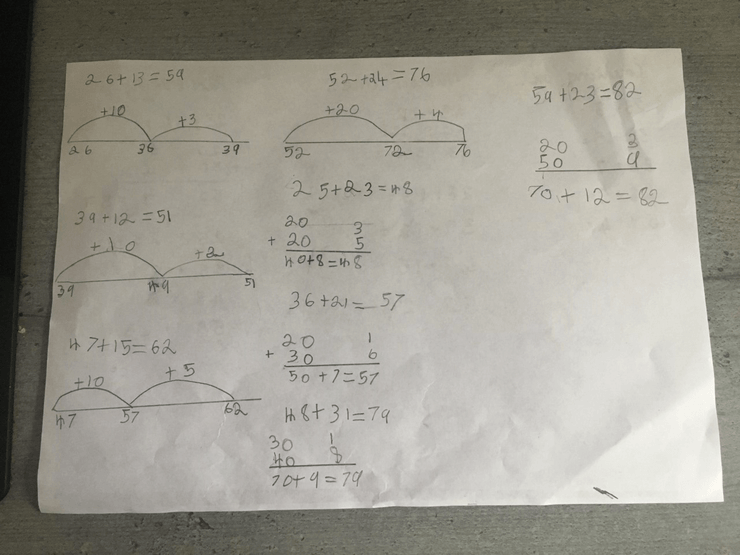 26+13=59
+10 +3
26 36 39
39+12=51
+10 +2
39 49 51
47+15=62
+10 +5
47 57 62
52+24=76
+20 +4
52 72 76
25+23=48
20 3
+ 20 5
40+8=48
36+21=57
20 1
+ 30 6
50+7=57
48+31=79
30 1
40 8
70+9=79
59+23=82
20 3
50 9
70+12=82